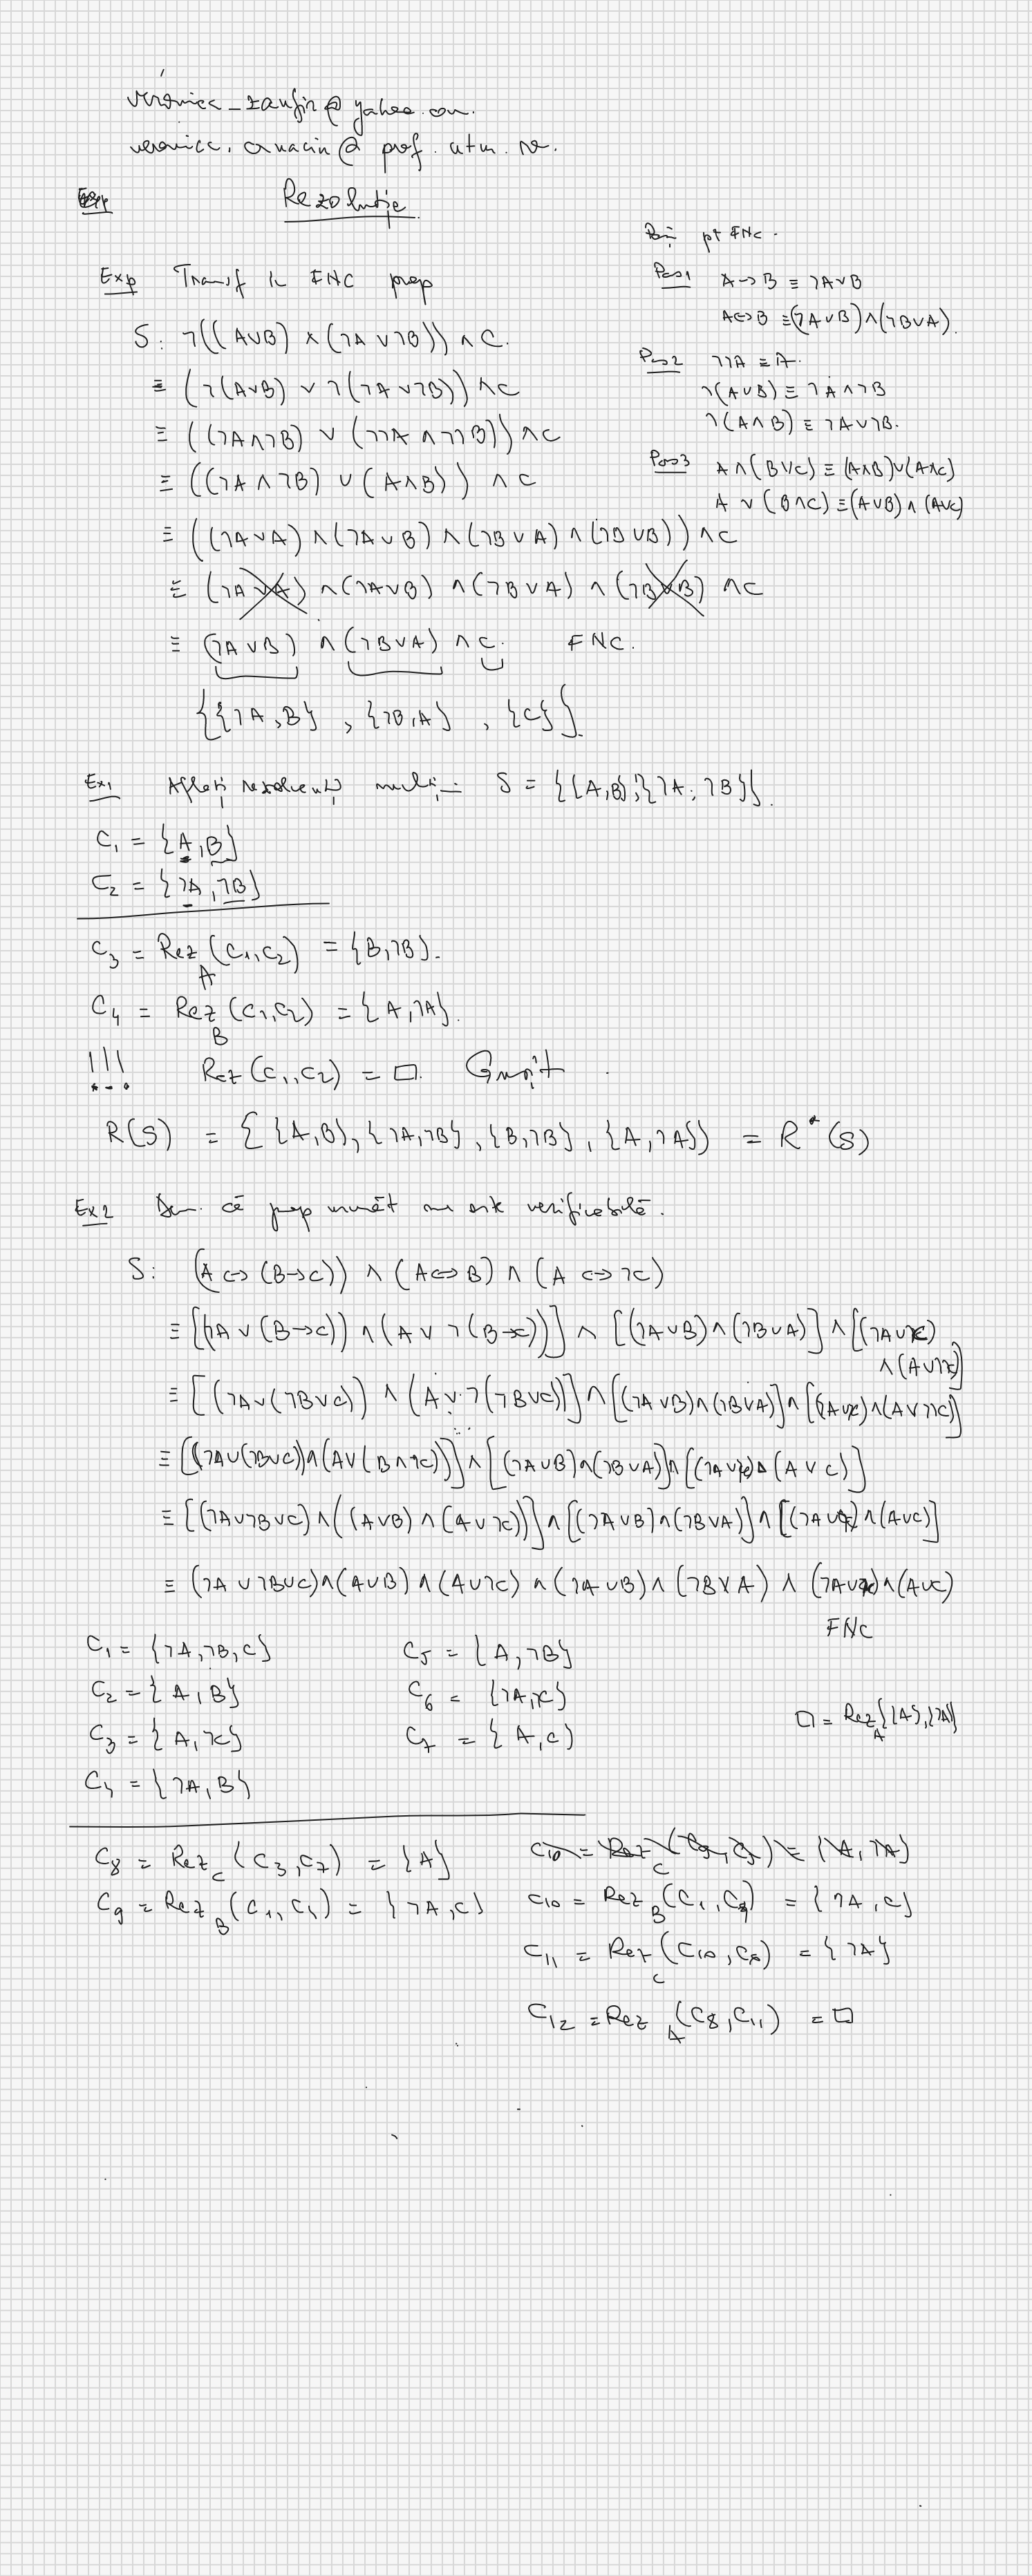 veronica_zanfir@yahoo.com.
veronica.crnacin@prof.utm.ro.
Rezoluție
Exp Transf în FNC prop
S: ¬((A∨B) ∧ (¬A∨¬B)) ∧ C.
≡ (¬(A∨B) ∨ ¬(¬A∨¬B)) ∧C
≡ ((¬A∧¬B) ∨ (¬¬A ∧ ¬¬B)) ∧C
≡ ((¬A∧¬B) ∨ (A∧B)) ∧ C
≡ ((¬A∨A) ∧ (¬A∨B) ∧ (¬B∨A) ∧ (¬B∨B)) ∧C
≡ (¬A∨A) ∧ (¬A∨B) ∧ (¬B∨A) ∧ (¬B∨B) ∧C
≡ (¬A∨B) ∧ (¬B∨A) ∧ C. FNC.
{{¬A,B}, {¬B,A}, {C}}.
pt FNC.
Pas1 A→B ≡ ¬A∨B
A↔B ≡ (¬A∨B)∧(¬B∨A).
Pas2 ¬¬A ≡ A.
¬(A∨B) ≡ ¬A∧¬B
¬(A∧B) ≡ ¬A∨¬B.
Pas3 A∧(B∨C) ≡ (A∧B)∨(A∧C)
A∨(B∧C) ≡ (A∨B)∧(A∨C)
Ex1 Aflați rezolvenții mulț S = {{A,B},{¬A,¬B}}.
C1 = {A,B}
C2 = {¬A,¬B}
C3 = Rez A (C1,C2) = {B,¬B}.
C4 = Rez B (C1,C2) = {A,¬A}.
!!! Rez(C1,C2) = □. Greșit.
R(S) = {{A,B},{¬A,¬B},{B,¬B},{A,¬A}} = R*(S)
Ex2 Dem. că prop următ nu este verificabilă.
S: (A↔(B→C)) ∧ (A↔B) ∧ (A↔¬C)
≡ [(¬A∨(B→C)) ∧ (A∨¬(B→C))] ∧ [(¬A∨B)∧(¬B∨A)] ∧ [(¬A∨¬C)
∧(A∨¬¬C)]
≡ [(¬A∨(¬B∨C)) ∧ (A∨¬(¬B∨C))] ∧ [(¬A∨B)∧(¬B∨A)] ∧ [(¬A∨¬C)∧(A∨¬¬C)]
≡ [(¬A∨(¬B∨C))∧(A∨(B∧¬C))] ∧ [(¬A∨B)∧(¬B∨A)] ∧ [(¬A∨¬C)∧(A∨C)]
≡ [(¬A∨¬B∨C)∧((A∨B)∧(A∨¬C))] ∧ [(¬A∨B)∧(¬B∨A)] ∧ [(¬A∨¬C)∧(A∨C)]
≡ (¬A∨¬B∨C)∧(A∨B)∧(A∨¬C)∧(¬A∨B)∧(¬B∨A)∧(¬A∨¬C)∧(A∨C)
FNC
C1 = {¬A,¬B,C} C5 = {A,¬B}
C2 = {A,B} C6 = {¬A,¬C}
C3 = {A,¬C} C7 = {A,C}
C4 = {¬A,B}
□ = Rez A {{A},{¬A}}
C8 = Rez C (C3,C7) = {A}
C9 = Rez B (C1,C4) = {¬A,C}
C10 = Rez B (C1,C4) = {¬A,C}
C11 = Rez C (C10,C6) = {¬A}
C12 = Rez A (C8,C11) = □